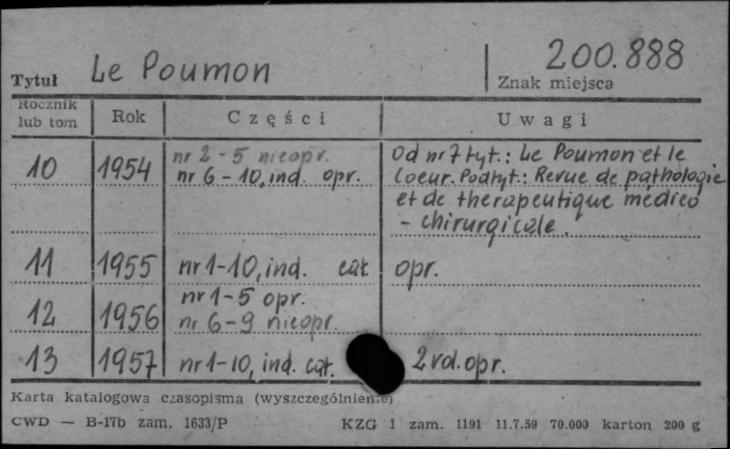 Tytuł Le Poumon 200.888
Znak miejsca
Rocznik lub tom Rok Części Uwagi
10 1954 nr 2 - 5 nieopr. Od nr 7 tyt.: Le Poumon et le
nr 6 - 10, ind. opr. Coeur. Podtyt.: Revue de pathologie
et de therapeutique medico
- chirurgicale.
11 1955 nr 1-10, ind. cat. opr.
12 1956 nr 1-5 opr.
nr 6-9 nieopr.
13 1957 nr 1-10, ind. cat. 2 vol. opr.
Karta katalogowa czasopisma (wyszczególnienie)
CWD — B-17b zam. 1633/P KZG 1 zam. 1191 11.7.59 70.000 karton 200 g